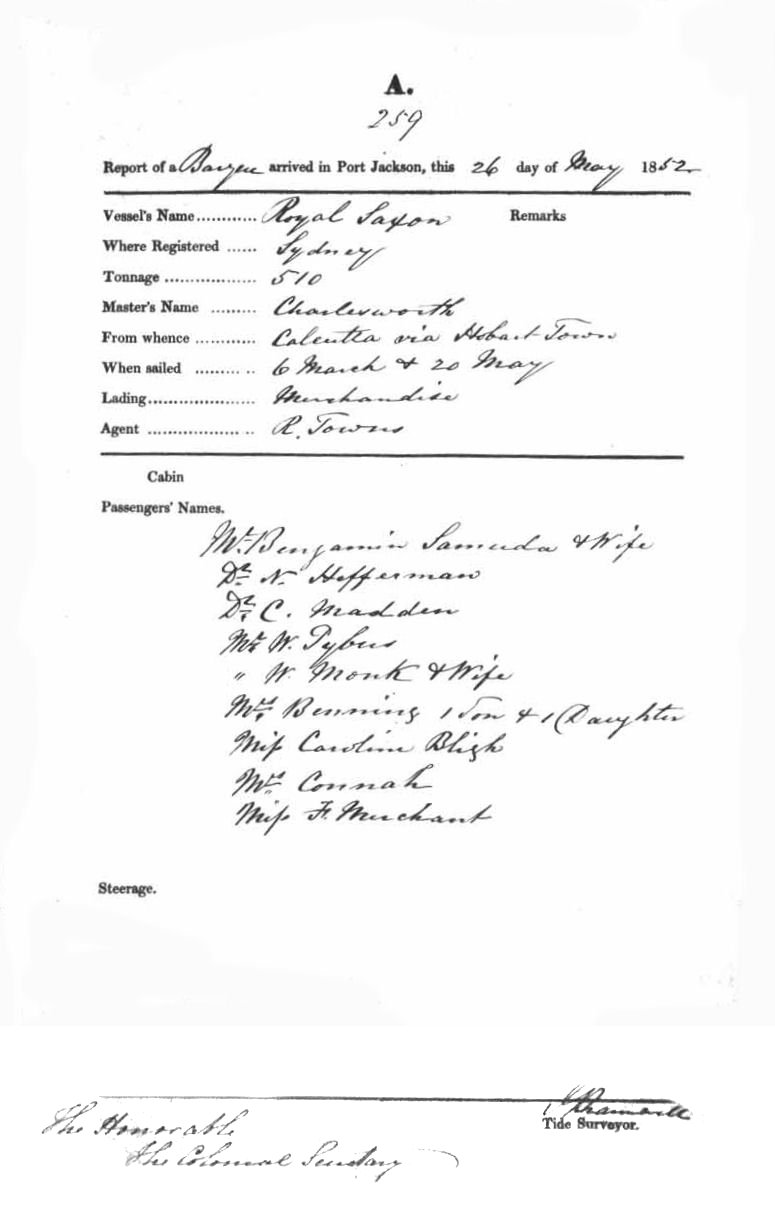 A.
259
Report of a Barque arrived in Port Jackson, this 26 day of May 1852
Vessel's Name............ Royal Saxon Remarks
Where Registered ...... Sydney
Tonnage .................. 510
Master's Name ......... Charlesworth
From whence ............ Calcutta via Hobart Town
When sailed ........... 6 March & 20 May
Lading..................... Merchandise
Agent ..................... R. Towns
Cabin
Passengers' Names.
Mr. Benjamin Samuda & Wife
Dr. N. Hefferman
Dr. C. Madden
Mr. W. Tybus
" W. Monk & Wife
Mrs. Benning 1 Son & 1 Daughter
Miss Caroline Bligh
Mrs. Connah
Miss F. Merchant
Steerage.
Bramwell
Tide Surveyor.
The Honorable
The Colonial Secretary